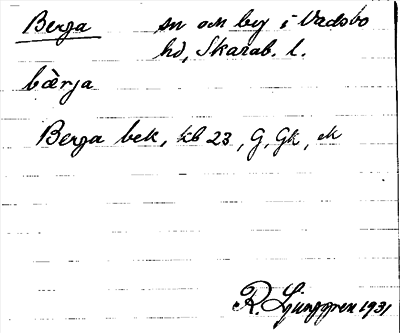 Berga sn och by i Vadsbo
hd, Skarab. l.
bæ̀rja
Berga bek, kb 23, G, Gk, ek
R. Ljunggren 1931